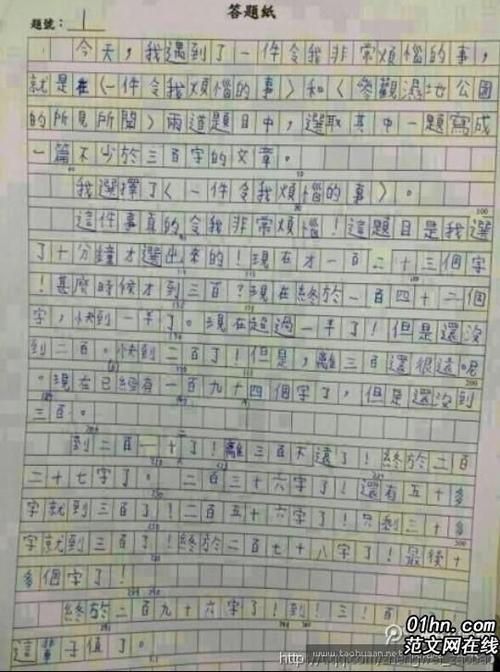 答題紙
題號：1
今天，我遇到了一件令我非常煩惱的事，
就是在〈一件令我煩惱的事〉和〈參觀濕地公園
的所見所聞〉兩道題目中，選取其中一題寫成
一篇不少於三百字的文章。
我選擇了〈一件令我煩惱的事〉。
這件事真的令我非常煩惱！這題目是我選
了十分鐘才選出來的！現在才一百二十三個字
！甚麼時候才到三百？現在終於一百四十二個
字，快到一半了。現在超過一半了！但是還沒
到二百。快到二百了！但是，離三百還很遠呢
。現在已經有一百九十四個字了，但是還沒到
三百。
到二百一十了！離三百不遠了！終於二百
二十七字了。二百三十六字了！還有五十多
字就到三百了！二百五十六字了！只剩三十多
字就到三百了！終於二百七十八字了！最後十
多個字了！
終於二百九十六字了！到！三！百！了！
這輩子值了。
01hn.com
范文网在线